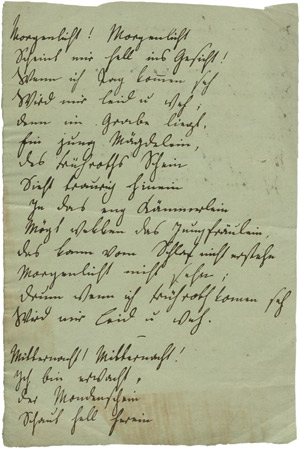 Morgenlicht! Morgenlicht
Scheint mir hell ins Gesicht!
Wenn ich Tag kommen seh
Wird mir leid u weh;
denn im Grabe liegt,
Ein jung Mägdelein,
des Frühroths Schein
Sieht traurig hinein
In das eng Kämmerlein
Möcht wekken das Jungfräulein,
das kann vom Schlaf nicht erstehn
Morgenlicht nicht sehn;
drum wenn ich Frühroth komen seh
Wird mir leid u weh.
Mitternacht! Mitternacht!
Ich bin erwacht,
der Mondenschein
Schaut hell herein